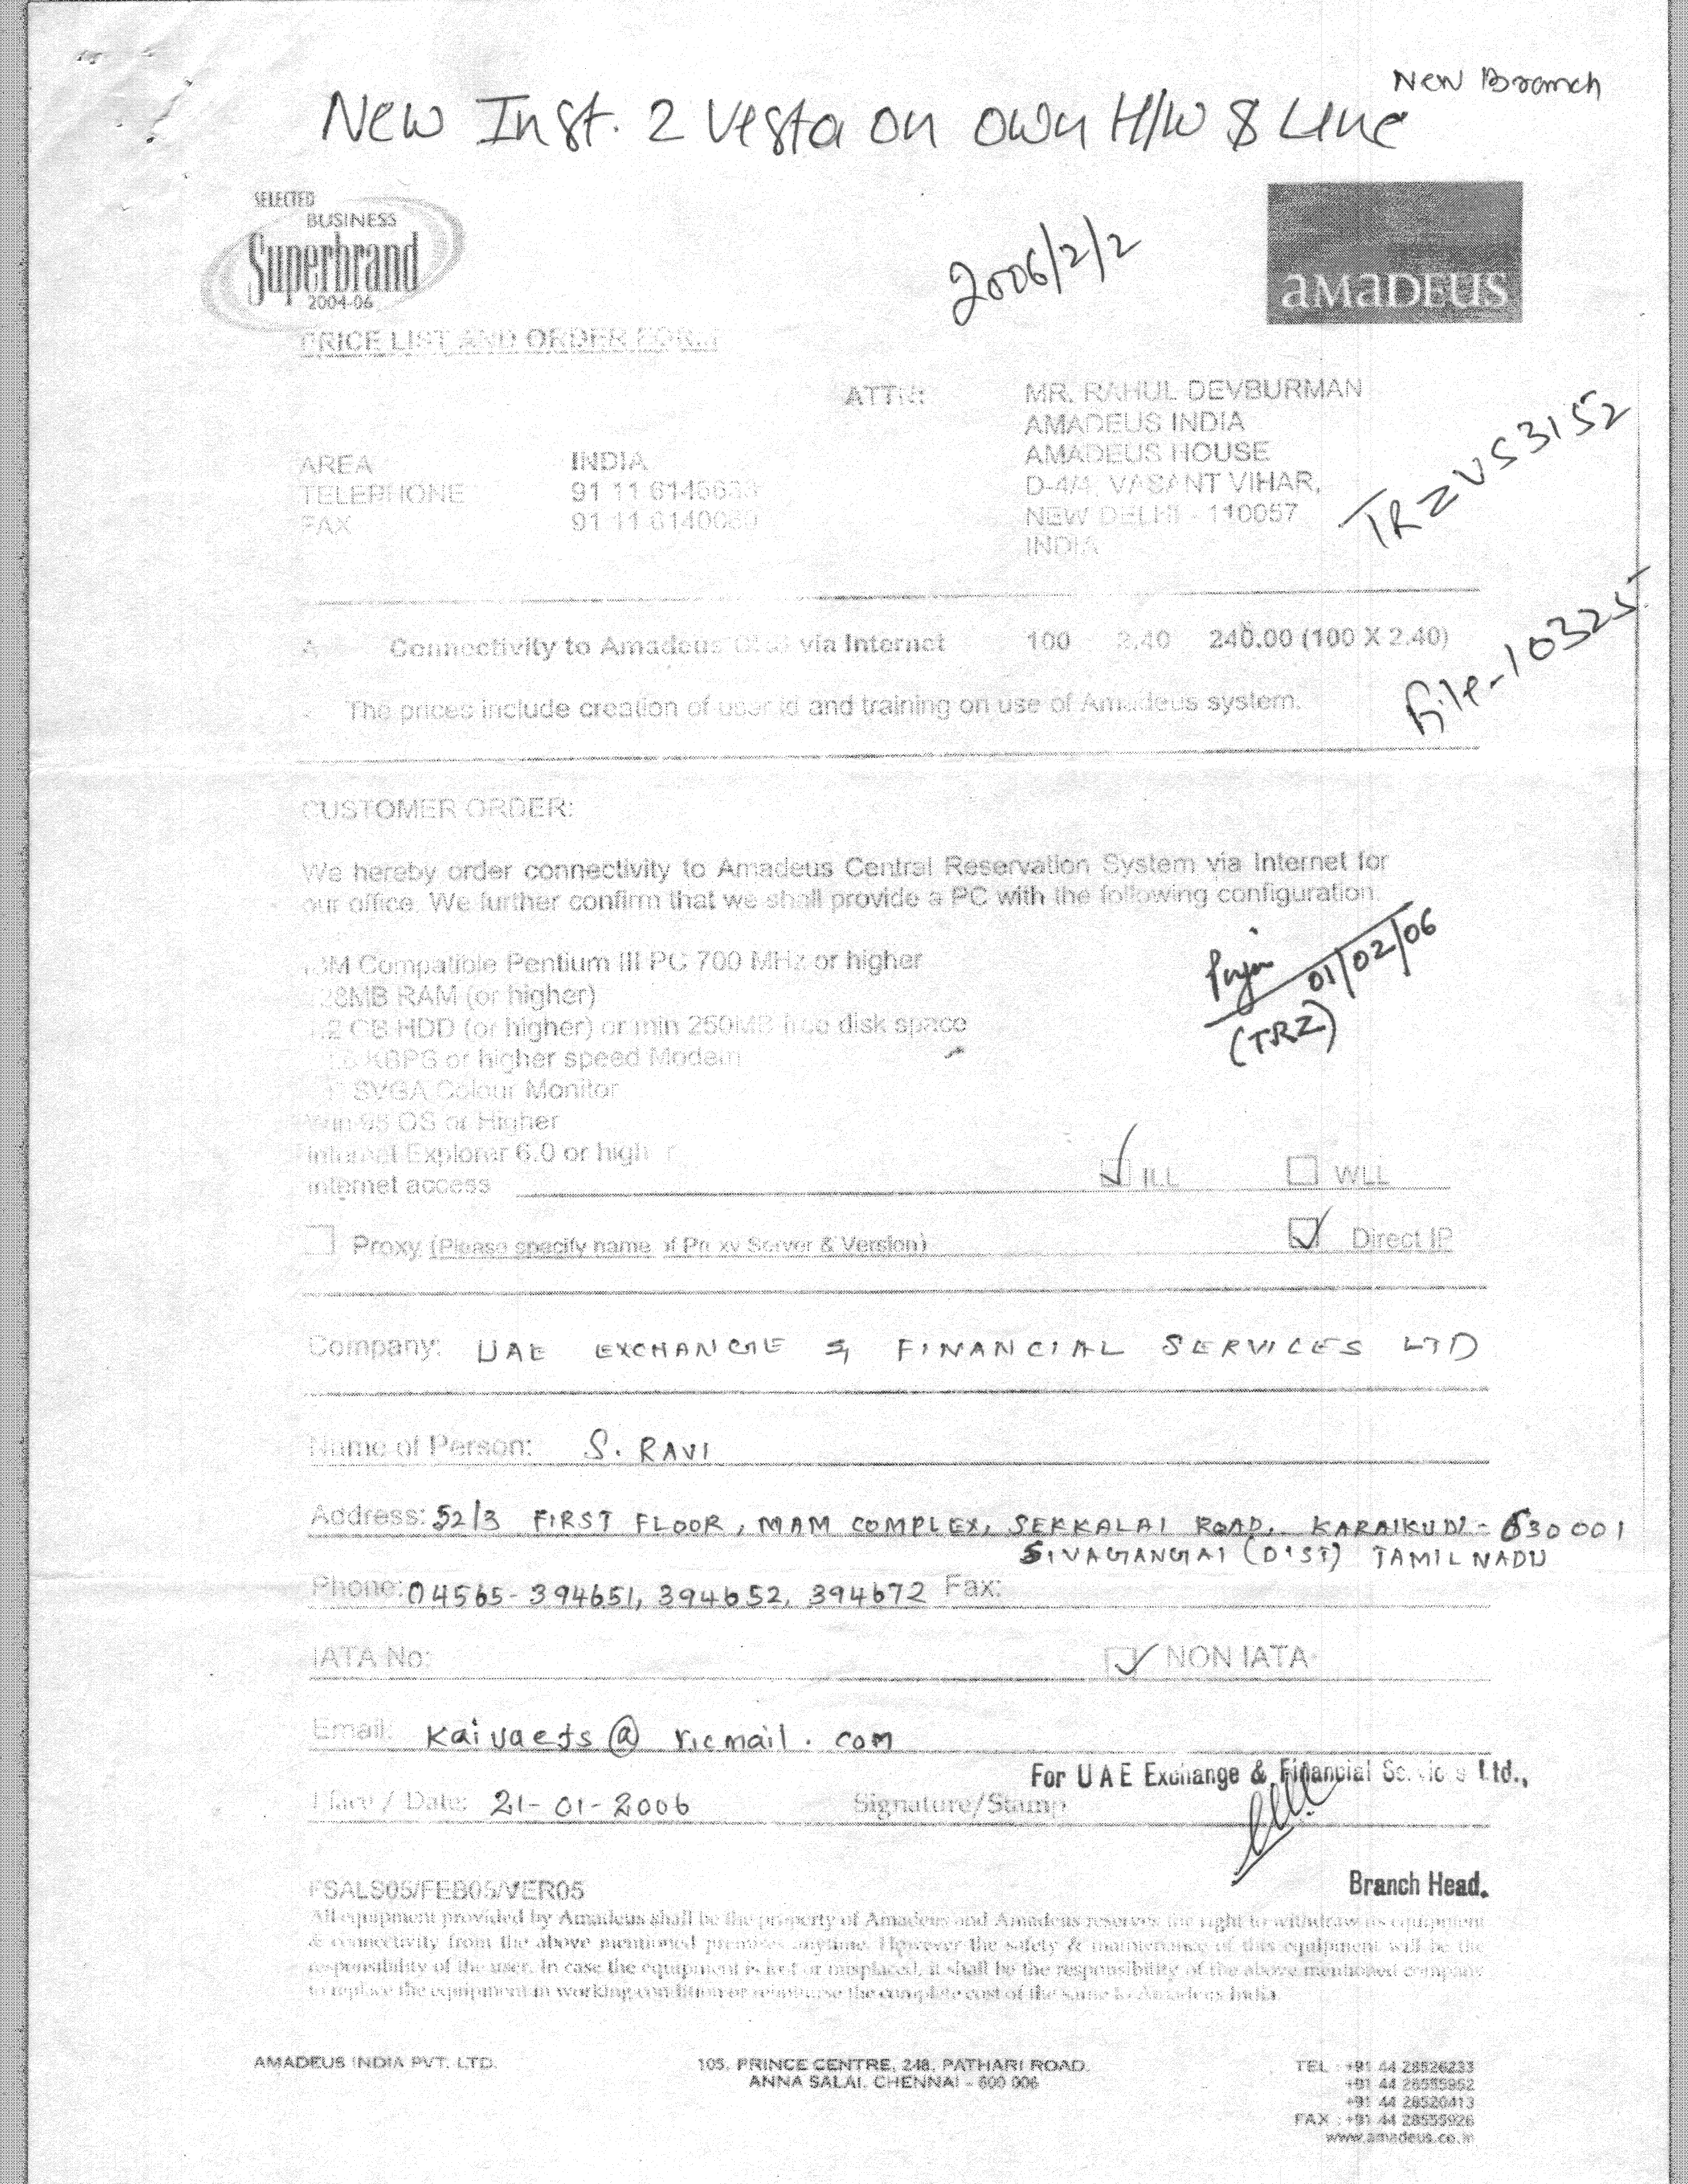 New Branch
New Inst. 2 Vista on own H/W & Line
SELECTED
BUSINESS
Superbrand
2004-06
2006/2/2
amadeus
PRICE LIST AND ORDER FORM
ATTN: MR. RAHUL DEVBURMAN
AMADEUS INDIA
AMADEUS HOUSE
AREA INDIA
TELEPHONE 91 11
D-4/4, VASANT VIHAR,
FAX 91 11
NEW DELHI - 110057
INDIA
TRZVS3152
File-10325
A Connectivity to Amadeus via Internet 100 2.40 240.00 (100 X 2.40)
The prices include creation of user id and training on use of Amadeus system.
CUSTOMER ORDER:
We hereby order connectivity to Amadeus Central Reservation System via Internet for
our office. We further confirm that we shall provide a PC with the following configuration.
01/02/06
(TRZ)
IBM Compatible Pentium III PC 700 MHz or higher
128MB RAM (or higher)
1.2 GB HDD (or higher) or min 250MB free disk space
KBPG or higher speed Modem
SVGA Colour Monitor
Win 98 OS or Higher
Internet Explorer 6.0 or higher
Internet access ILL WLL
Proxy (Please specify name of Proxy Server & Version) Direct IP
Company: UAE EXCHANGE & FINANCIAL SERVICES LTD
Name of Person: S. RAVI
Address: 52/3 FIRST FLOOR, MAM COMPLEX, SEKKALAI ROAD, KARAIKUDI - 630 001
SIVAGANGAI (DIST) TAMIL NADU
Phone: 04565-394651, 394652, 394672 Fax:
IATA No: NON IATA
Email: Kaiuaefs@ricmail.com
For UAE Exchange & Financial Services Ltd.,
Place / Date: 21-01-2006 Signature/Stamp
Branch Head.
FSALS05/FEB05/VER05
All equipment provided by Amadeus shall be the property of Amadeus and Amadeus reserves the right to withdraw its equipment
& connectivity from the above mentioned premises anytime. However the safety & maintenance of this equipment will be the
responsibility of the user. In case the equipment is lost or misplaced, it shall be the responsibility of the above mentioned company
to replace the equipment in working condition or reimburse the complete cost of the same to Amadeus India
AMADEUS INDIA PVT. LTD.
105, PRINCE CENTRE, 248, PATHARI ROAD,
ANNA SALAI, CHENNAI - 600 006
TEL : +91 44 28526233
+91 44 28555952
+91 44 28520413
FAX : +91 44 28555926
www.amadeus.co.in